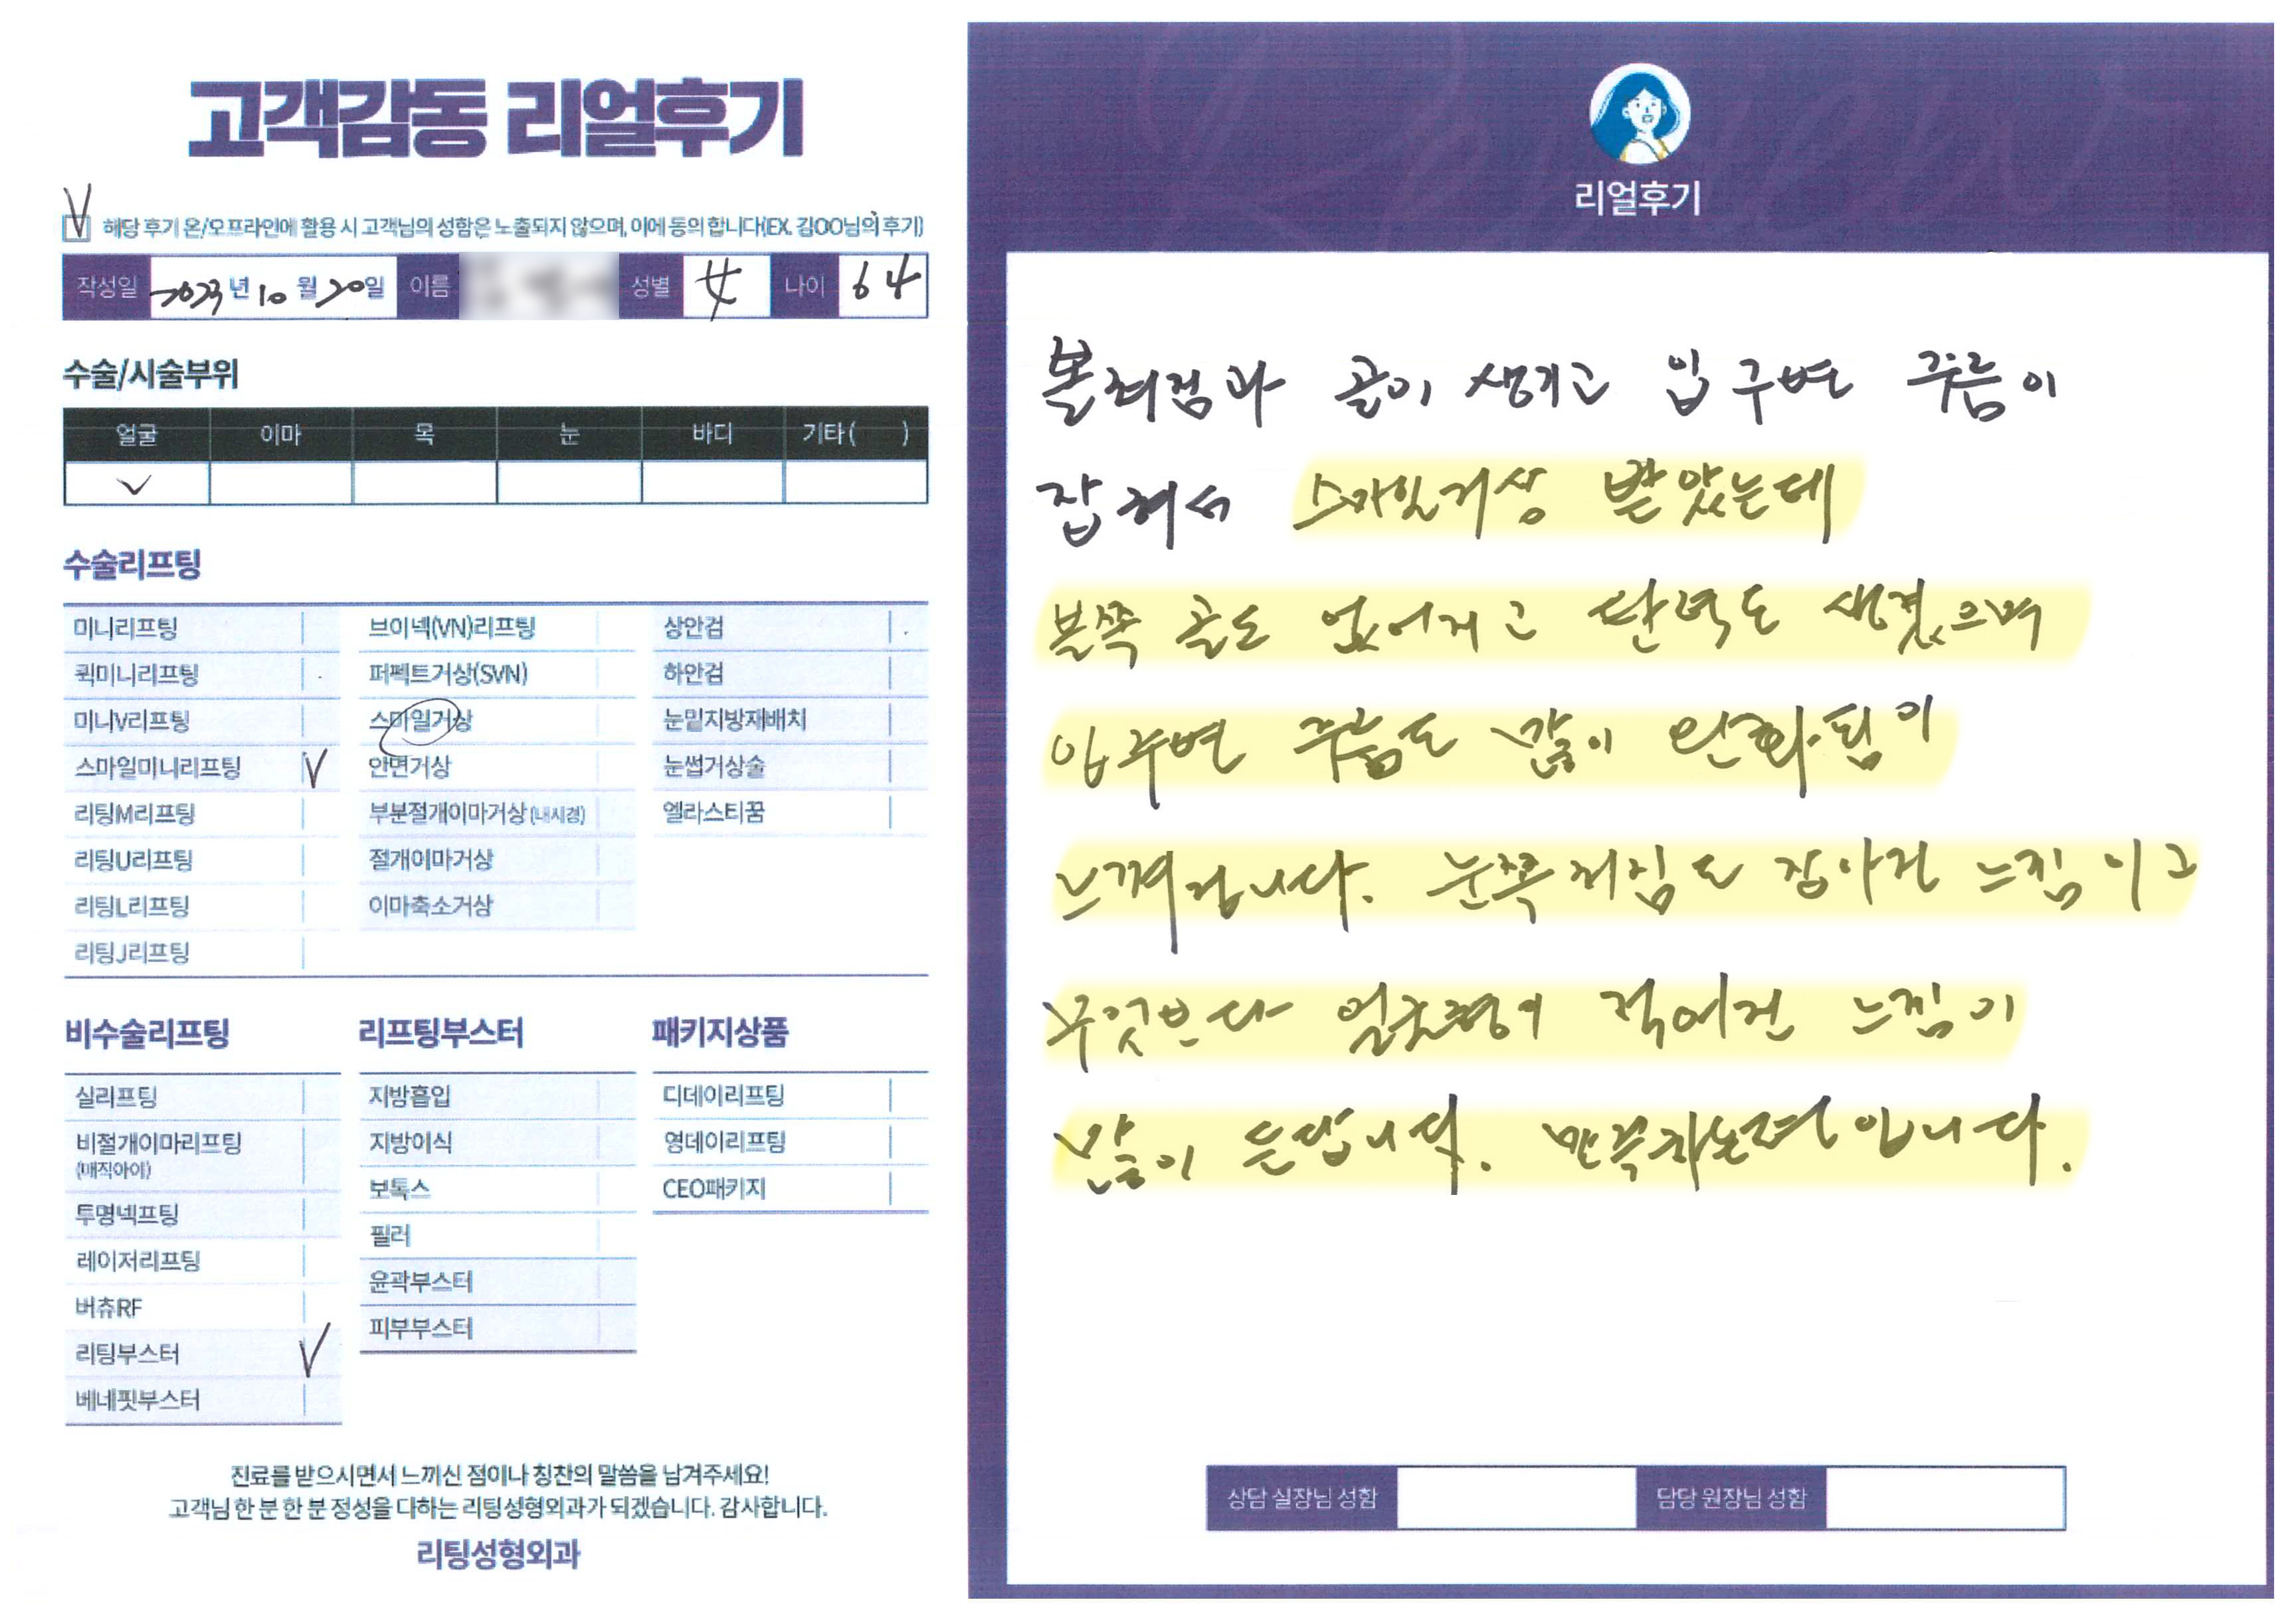 고객감동 리얼후기
V 해당 후기 온/오프라인에 활용 시 고객님의 성함은 노출되지 않으며, 이에 동의 합니다(EX. 김OO님의 후기)
작성일 2023년 10월 20일 이름 성별 女 나이 64
수술/시술부위
얼굴 이마 목 눈 바디 기타( )
✓
수술리프팅
미니리프팅 브이넥(VN)리프팅 상안검
퀵미니리프팅 퍼펙트거상(SVN) 하안검
미니V리프팅 스마일거상 눈밑지방재배치
스마일미니리프팅 V 안면거상 눈썹거상술
리팅M리프팅 부분절개이마거상(내시경) 엘라스티꿈
리팅U리프팅 절개이마거상
리팅L리프팅 이마축소거상
리팅J리프팅
비수술리프팅
실리프팅
비절개이마리프팅
(매직아이)
투명넥프팅
레이저리프팅
버츄RF
리팅부스터 V
베네핏부스터
리프팅부스터
지방흡입
지방이식
보톡스
필러
윤곽부스터
피부부스터
패키지상품
디데이리프팅
영데이리프팅
CEO패키지
진료를 받으시면서 느끼신 점이나 칭찬의 말씀을 남겨주세요!
고객님 한 분 한 분 정성을 다하는 리팅성형외과가 되겠습니다. 감사합니다.
리팅성형외과
리얼후기
볼처짐과 골이 생기고 입 주변 주름이
잡혀서 스마일거상 받았는데
볼쪽 골도 없어지고 탄력도 생겼으며
입 주변 주름도 많이 완화됨이
느껴집니다. 눈쪽 처짐도 잡아진 느낌이고
무엇보다 얼굴형이 작어진 느낌이
많이 든답니다. 만족하는 편입니다.
상담 실장님 성함 담당 원장님 성함